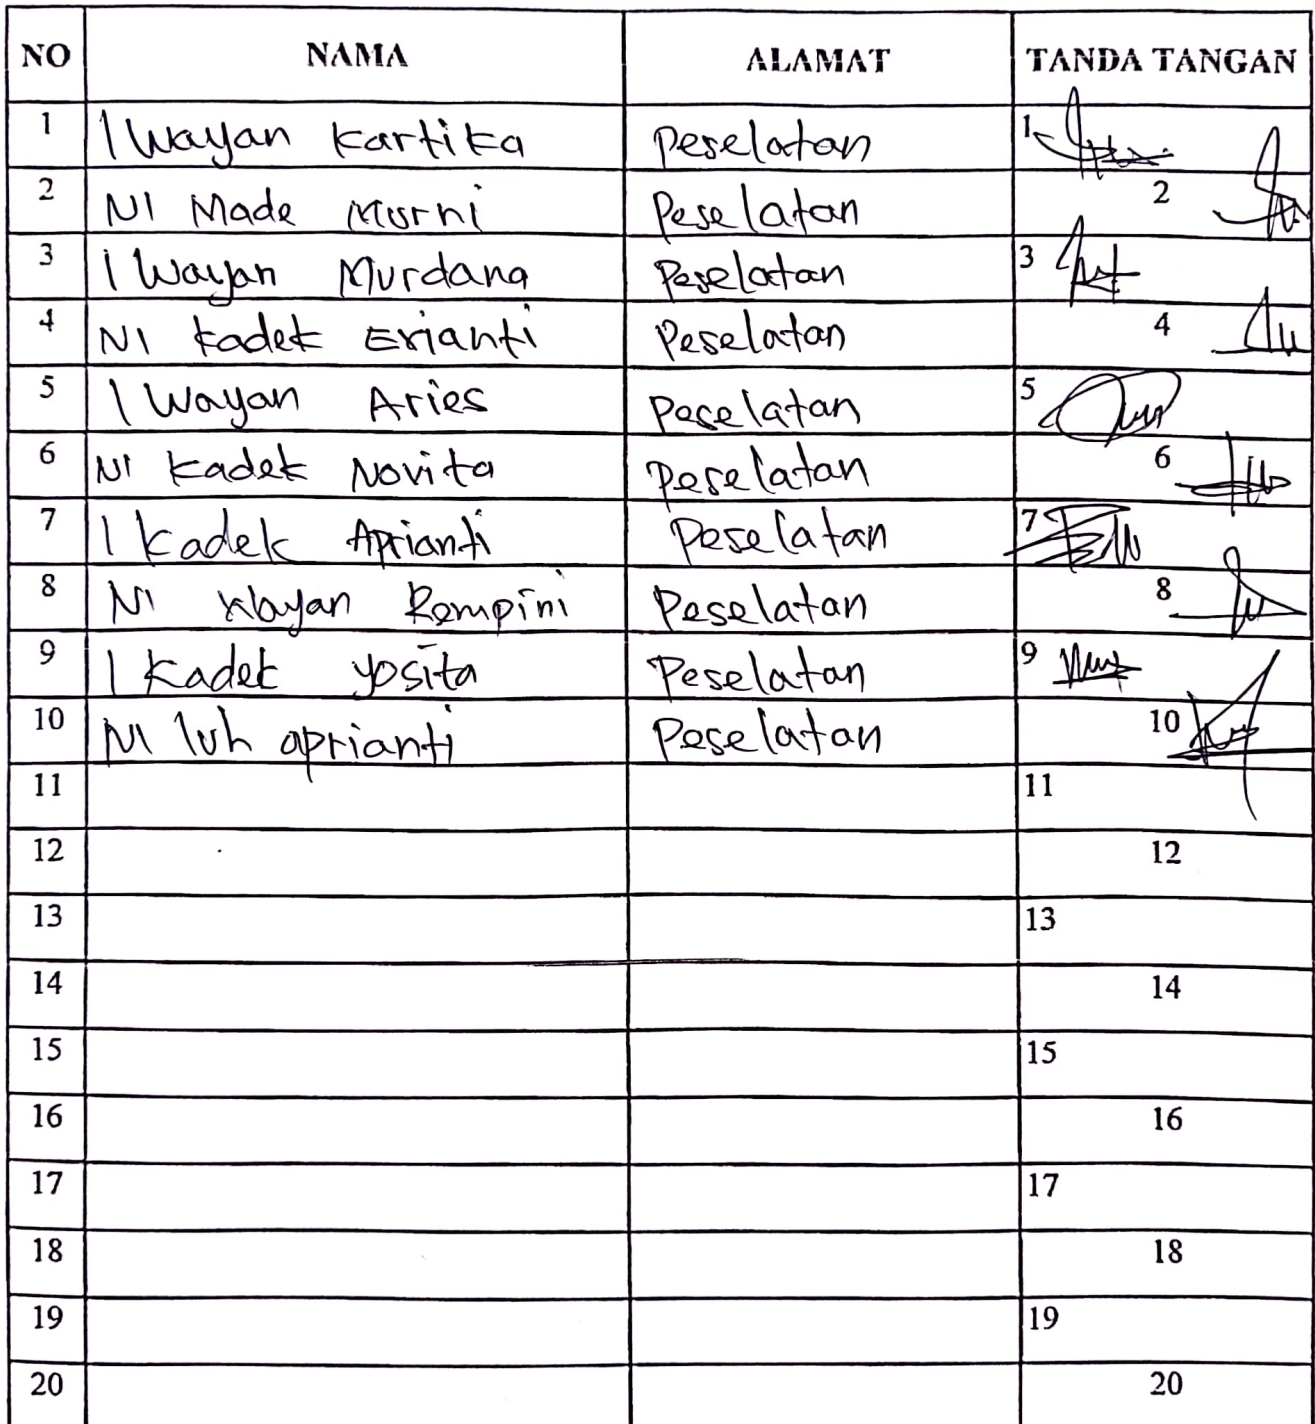 NO NAMA ALAMAT TANDA TANGAN
1 I Wayan Kartika Peselatan 1
2 NI Made Murni Peselatan 2
3 I Wayan Murdana Peselatan 3
4 NI Kadek Erianti Peselatan 4
5 I Wayan Aries Peselatan 5
6 NI Kadek Novita Peselatan 6
7 I Kadek Aprianti Peselatan 7
8 NI Wayan Rempini Peselatan 8
9 I Kadek Yosita Peselatan 9
10 NI luh aprianti Peselatan 10
11 11
12 12
13 13
14 14
15 15
16 16
17 17
18 18
19 19
20 20